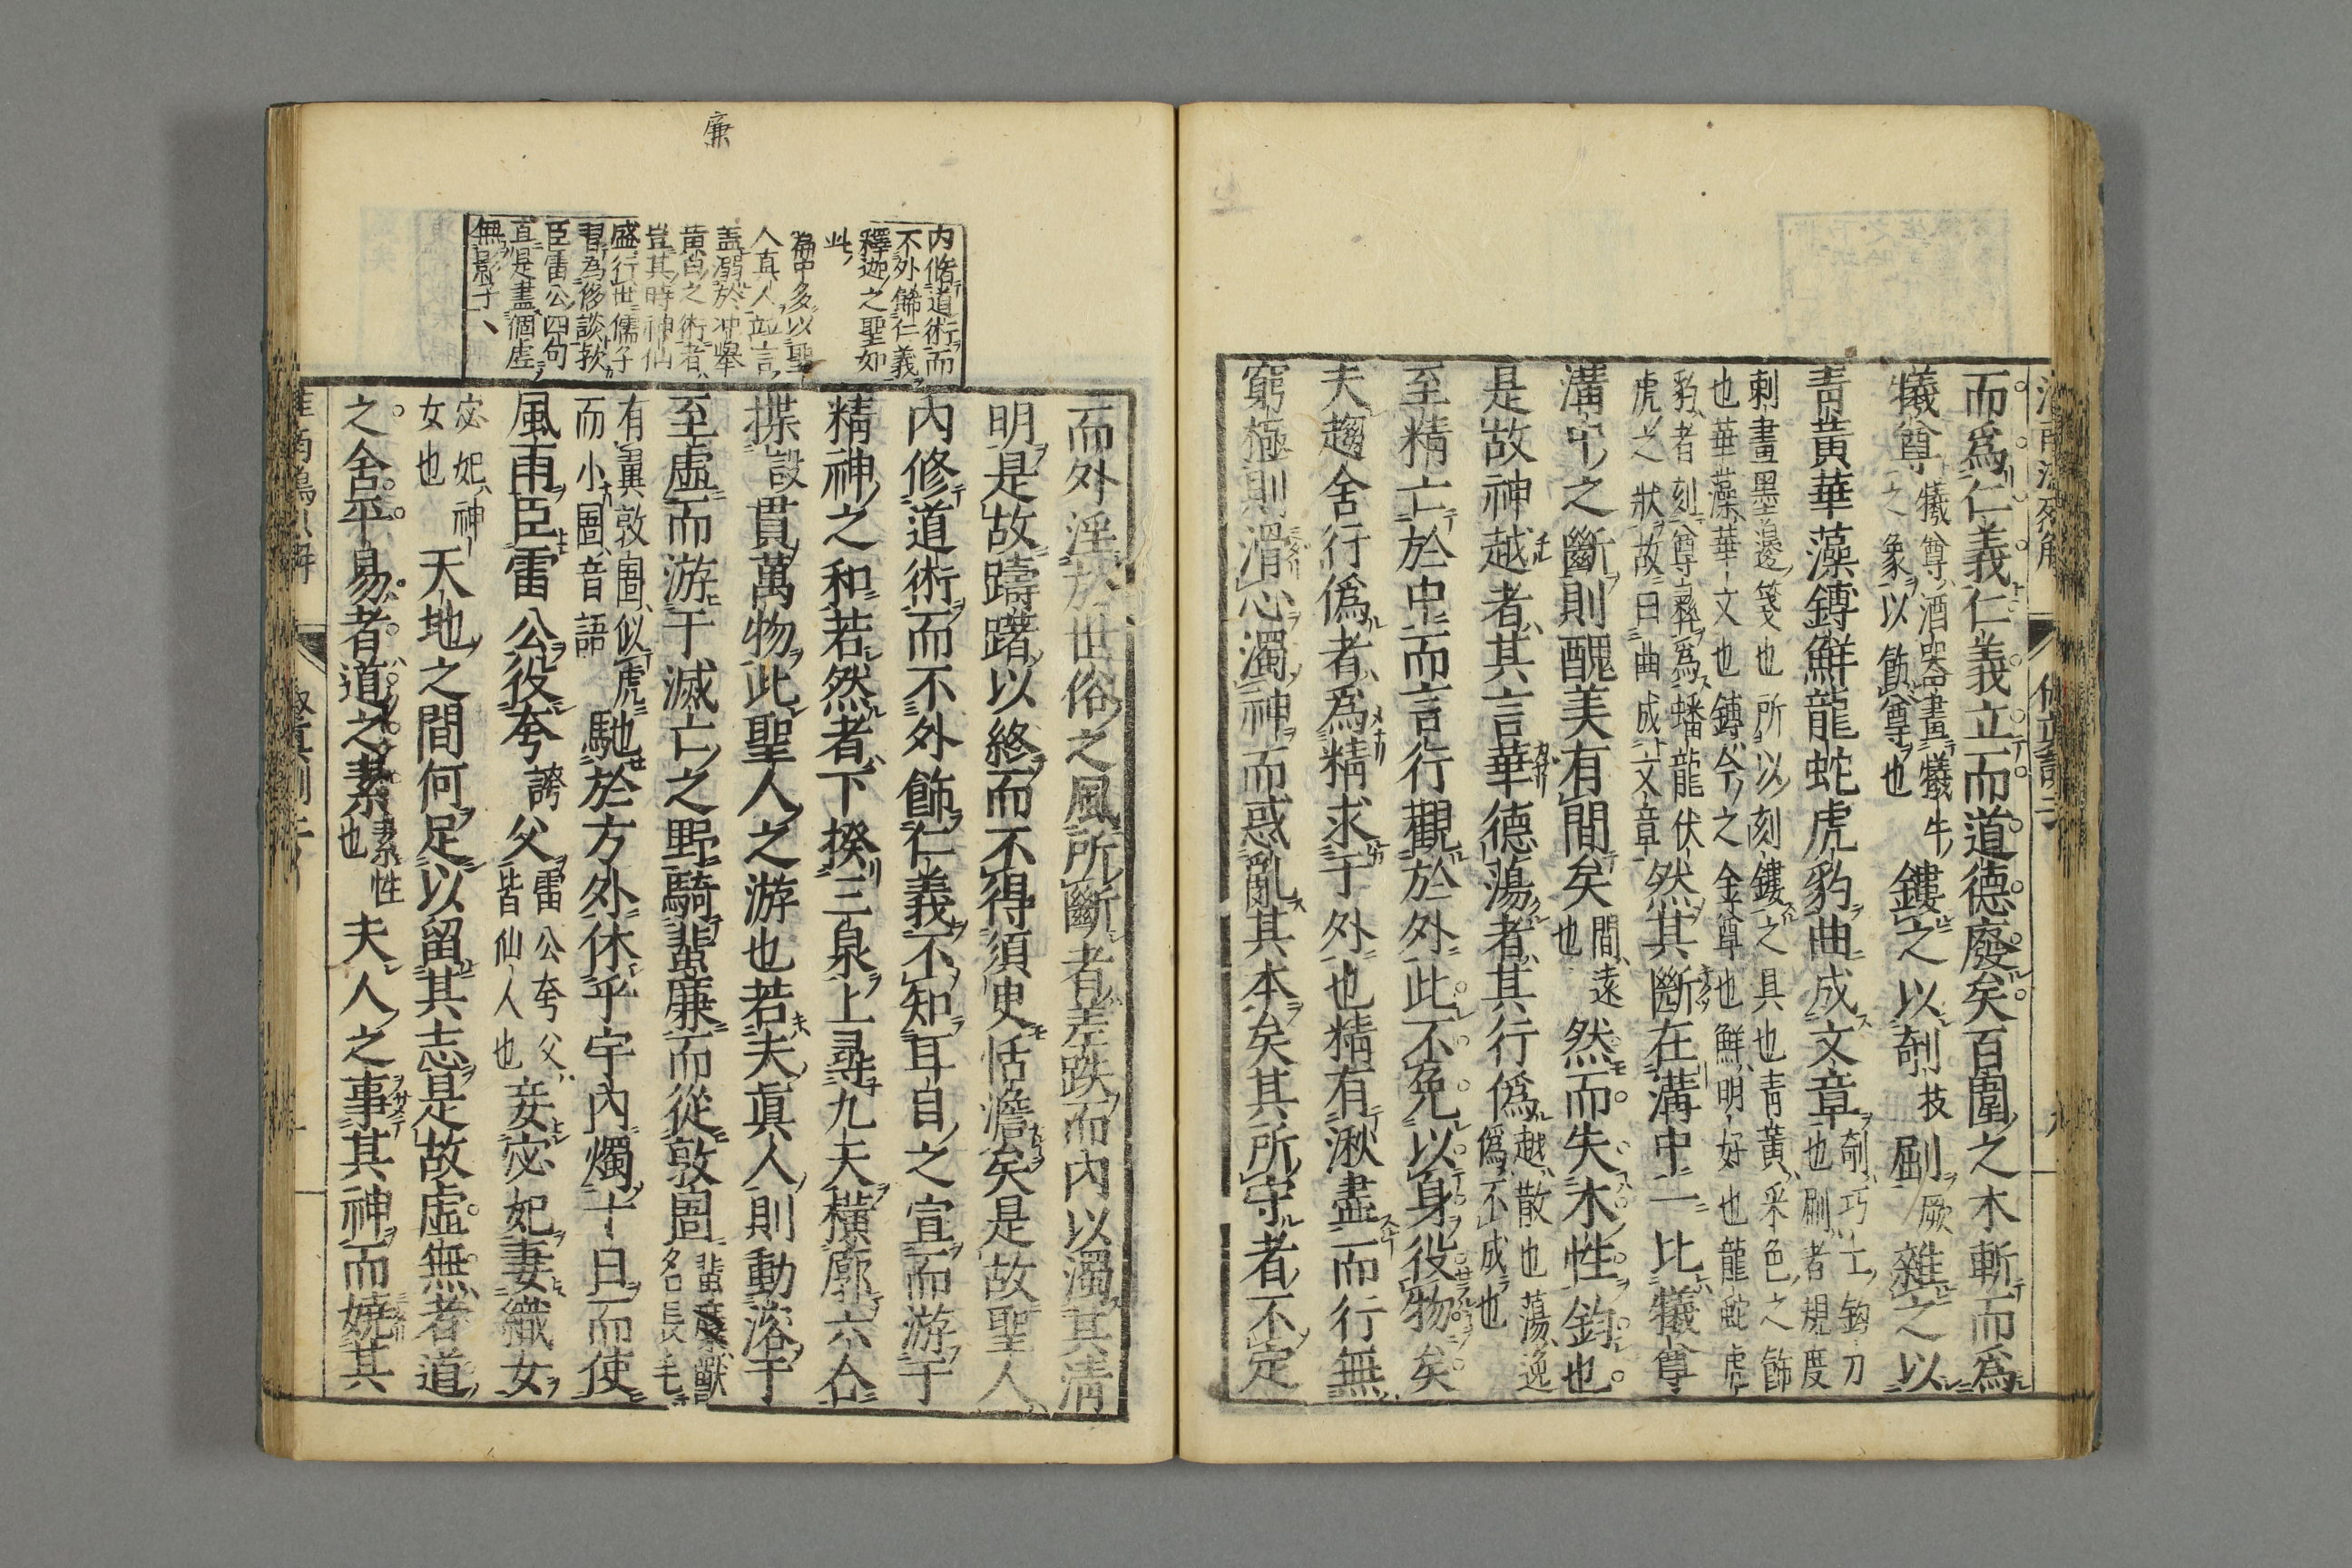 而爲仁義仁義立而道德廢矣百圍之木斬而爲
犧尊犧尊酒器畫犧牛之象以飾尊也鏤之以剞技㓸厥雜之以
青黃華藻鎛鮮龍蛇虎豹曲成文章剞巧工鈎刀也㓸者規度
刺畫墨邊箋也所以刻鏤之具也青黃采色之飾
也華藻華文也鎛今之金尊也鮮明好也龍蛇虎
豹者刻尊彝爲蟠龍伏
虎之狀故曰曲成文章然其斷在溝中一比犧尊
溝中之斷則醜美有間矣間遠也然而失木性鈞也
是故神越者其言華德蕩者其行僞越散也蕩逸僞不成也
至精亡於中而言行觀於外此不免以身役物矣
夫趨舍行僞者爲精求于外也精有湫盡而行無
窮極則滑心濁神而惑亂其本矣其所守者不定
廉
內脩道術而
不外餙仁義
釋迦之聖如
此
篇中多以聖
人真人竝言
盖溺於冲舉
黄白之術者
豈其時神仙
盛行世儒子
書為侈談歟
臣雷公四句
直是畫個虛
無影子
而外淫於世俗之風所斷者差跌而內以濁其清
明是故躊躇以終而不得須臾恬澹矣是故聖人
內修道術而不外飾仁義不知耳目之宣而游于
精神之和若然者下揆三泉上尋九天橫廓六合
揲設貫萬物此聖人之游也若夫眞人則動溶于
至虛而游于滅亡之野騎蜚廉而從敦圄蜚廉獸名長毛
有翼敦圄似虎而小圄音語馳於方外休乎宇內燭十日而使
風雨臣雷公役夸誇父雷公夸父皆仙人也妾宓妃妻織女
宓妃神女也天地之間何足以留其志是故虛無者道
之舍平易者道之素素性也夫人之事其神而嬈其